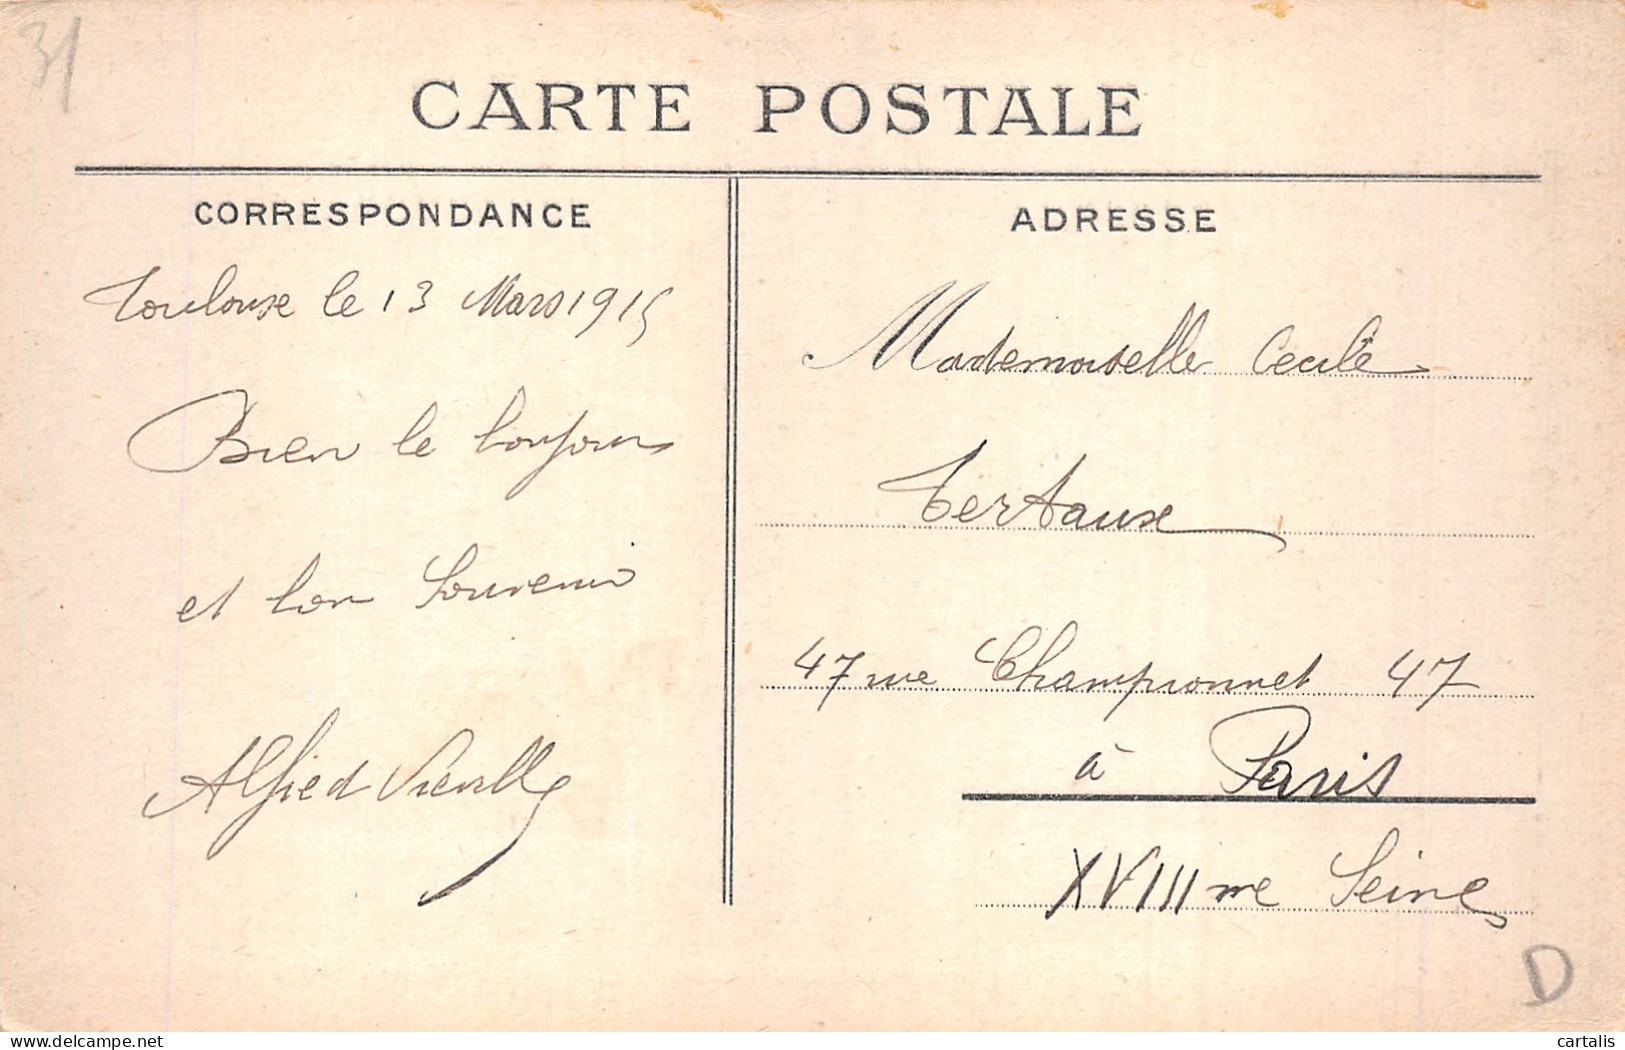 31
CARTE POSTALE
CORRESPONDANCE
Toulouse le 13 Mars 1915
Bien le bonjour
et bon Souvenir
Alfred
ADRESSE
Mademoiselle Cecile
Tertaux
47 rue Championnet 47
à Paris
XVIIIme Seine
D
cartalis
delcampe.net